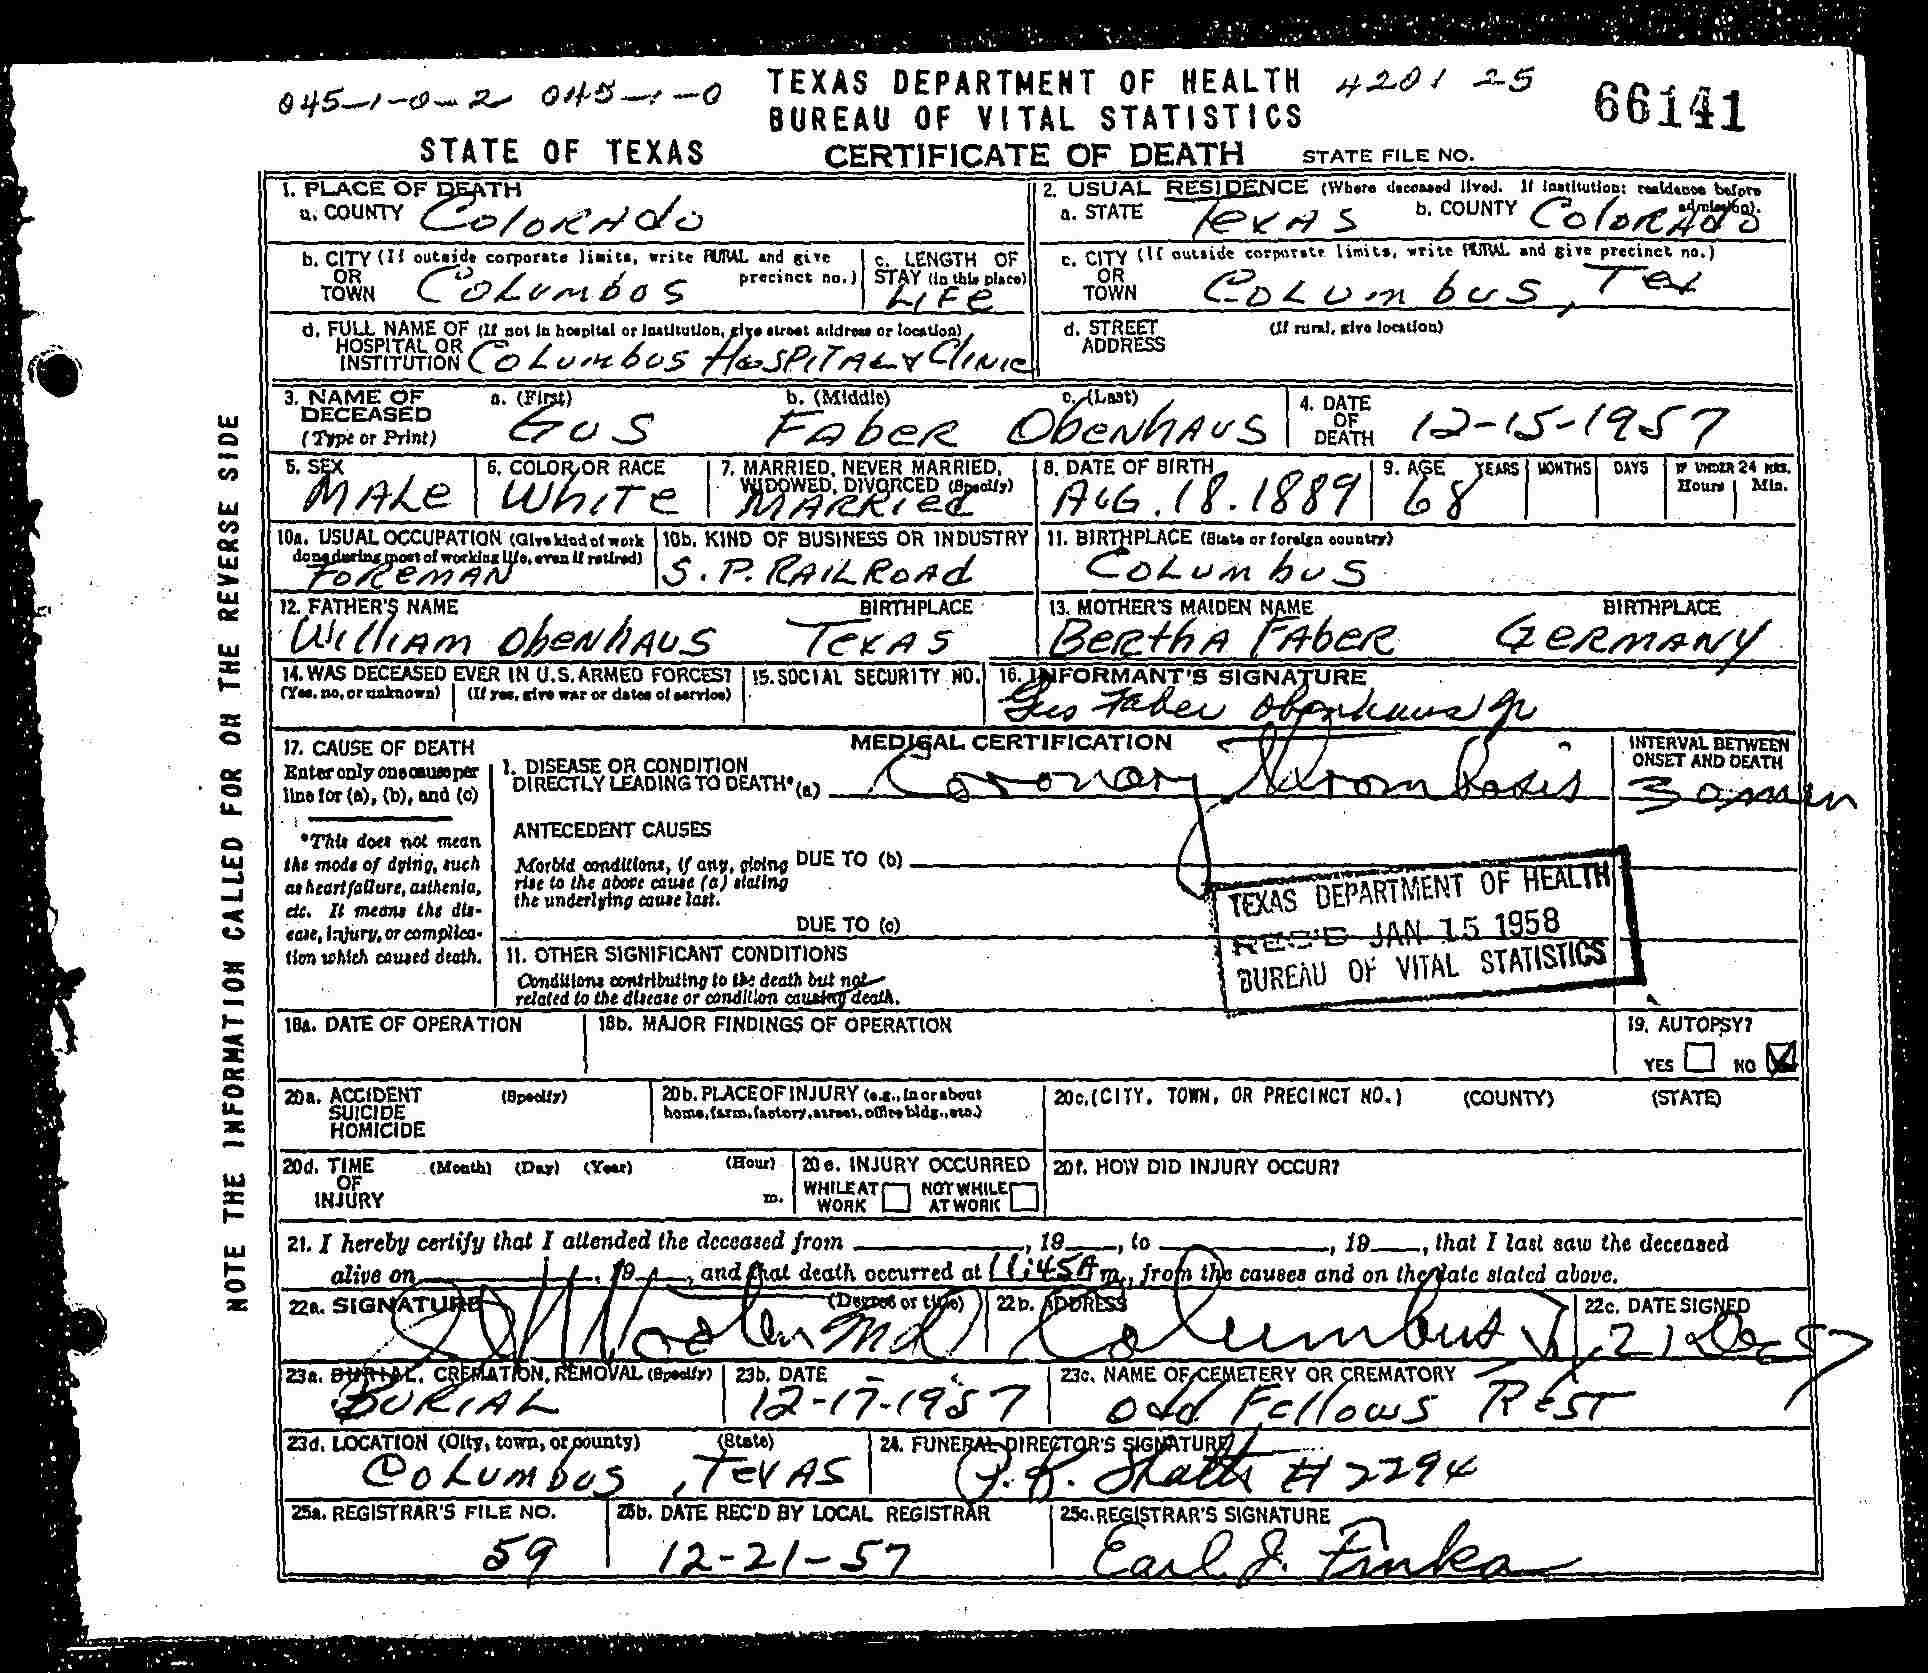 045-1-0-2 045-1-0 TEXAS DEPARTMENT OF HEALTH 4201 25
BUREAU OF VITAL STATISTICS 66141
STATE OF TEXAS CERTIFICATE OF DEATH STATE FILE NO.
NOTE THE INFORMATION CALLED FOR ON THE REVERSE SIDE
1. PLACE OF DEATH
a. COUNTY Colorado
2. USUAL RESIDENCE (Where deceased lived. If institution: residence before admission).
a. STATE Texas b. COUNTY Colorado
b. CITY (If outside corporate limits, write RURAL and give precinct no.)
OR
TOWN Columbos
c. LENGTH OF
STAY (in this place)
LIFE
c. CITY (If outside corporate limits, write RURAL and give precinct no.)
OR
TOWN Columbus, Tex
d. FULL NAME OF (If not in hospital or institution, give street address or location)
HOSPITAL OR
INSTITUTION Columbus Hospital & Clinic
d. STREET (If rural, give location)
ADDRESS
3. NAME OF DECEASED (Type or Print)
a. (First) b. (Middle) c. (Last)
Gus Faber Obenhaus
4. DATE OF DEATH 12-15-1957
5. SEX
Male
6. COLOR OR RACE
White
7. MARRIED, NEVER MARRIED, WIDOWED, DIVORCED (Specify)
Married
8. DATE OF BIRTH
Aug. 18. 1889
9. AGE YEARS MONTHS DAYS IF UNDER 24 HRS. Hours Min.
68
10a. USUAL OCCUPATION (Give kind of work done during most of working life, even if retired)
Foreman
10b. KIND OF BUSINESS OR INDUSTRY
S. P. Railroad
11. BIRTHPLACE (State or foreign country)
Columbus
12. FATHER'S NAME BIRTHPLACE
William Obenhaus Texas
13. MOTHER'S MAIDEN NAME BIRTHPLACE
Bertha Faber Germany
14. WAS DECEASED EVER IN U.S. ARMED FORCES?
(Yes, no, or unknown) (If yes, give war or dates of service)
15. SOCIAL SECURITY NO.
16. INFORMANT'S SIGNATURE
Gus Faber Obenhaus Jr
17. CAUSE OF DEATH
Enter only one cause per
line for (a), (b), and (c)
*This does not mean
the mode of dying, such
as heart failure, asthenia,
etc. It means the dis-
ease, injury, or complica-
tion which caused death.
MEDICAL CERTIFICATION
1. DISEASE OR CONDITION
DIRECTLY LEADING TO DEATH* (a) Coronary Thrombosis
INTERVAL BETWEEN
ONSET AND DEATH
30 min
ANTECEDENT CAUSES
Morbid conditions, if any, giving DUE TO (b)
rise to the above cause (a) stating
the underlying cause last.
DUE TO (c)
11. OTHER SIGNIFICANT CONDITIONS
Conditions contributing to the death but not
related to the disease or condition causing death.
TEXAS DEPARTMENT OF HEALTH
REC'D JAN 15 1958
BUREAU OF VITAL STATISTICS
18a. DATE OF OPERATION 18b. MAJOR FINDINGS OF OPERATION 19. AUTOPSY?
YES NO X
20a. ACCIDENT (Specify)
SUICIDE
HOMICIDE
20b. PLACE OF INJURY (e.g., in or about
home, farm, factory, street, office bldg., etc.)
20c. (CITY, TOWN, OR PRECINCT NO.) (COUNTY) (STATE)
20d. TIME (Month) (Day) (Year) (Hour)
OF
INJURY m.
20e. INJURY OCCURRED
WHILE AT WORK NOT WHILE AT WORK
20f. HOW DID INJURY OCCUR?
21. I hereby certify that I attended the deceased from , 19 , to , 19 , that I last saw the deceased
alive on , 19 , and that death occurred at 11:45A m., from the causes and on the date stated above.
22a. SIGNATURE (Degree or title) 22b. ADDRESS 22c. DATE SIGNED
MD Columbus 21 Dec 57
23a. BURIAL, CREMATION, REMOVAL (Specify)
Burial
23b. DATE
12-17-1957
23c. NAME OF CEMETERY OR CREMATORY
Odd Fellows Rest
23d. LOCATION (City, town, or county) (State)
Columbus, Texas
24. FUNERAL DIRECTOR'S SIGNATURE
# 2294
25a. REGISTRAR'S FILE NO.
59
25b. DATE REC'D BY LOCAL REGISTRAR
12-21-57
25c. REGISTRAR'S SIGNATURE
Earl J.